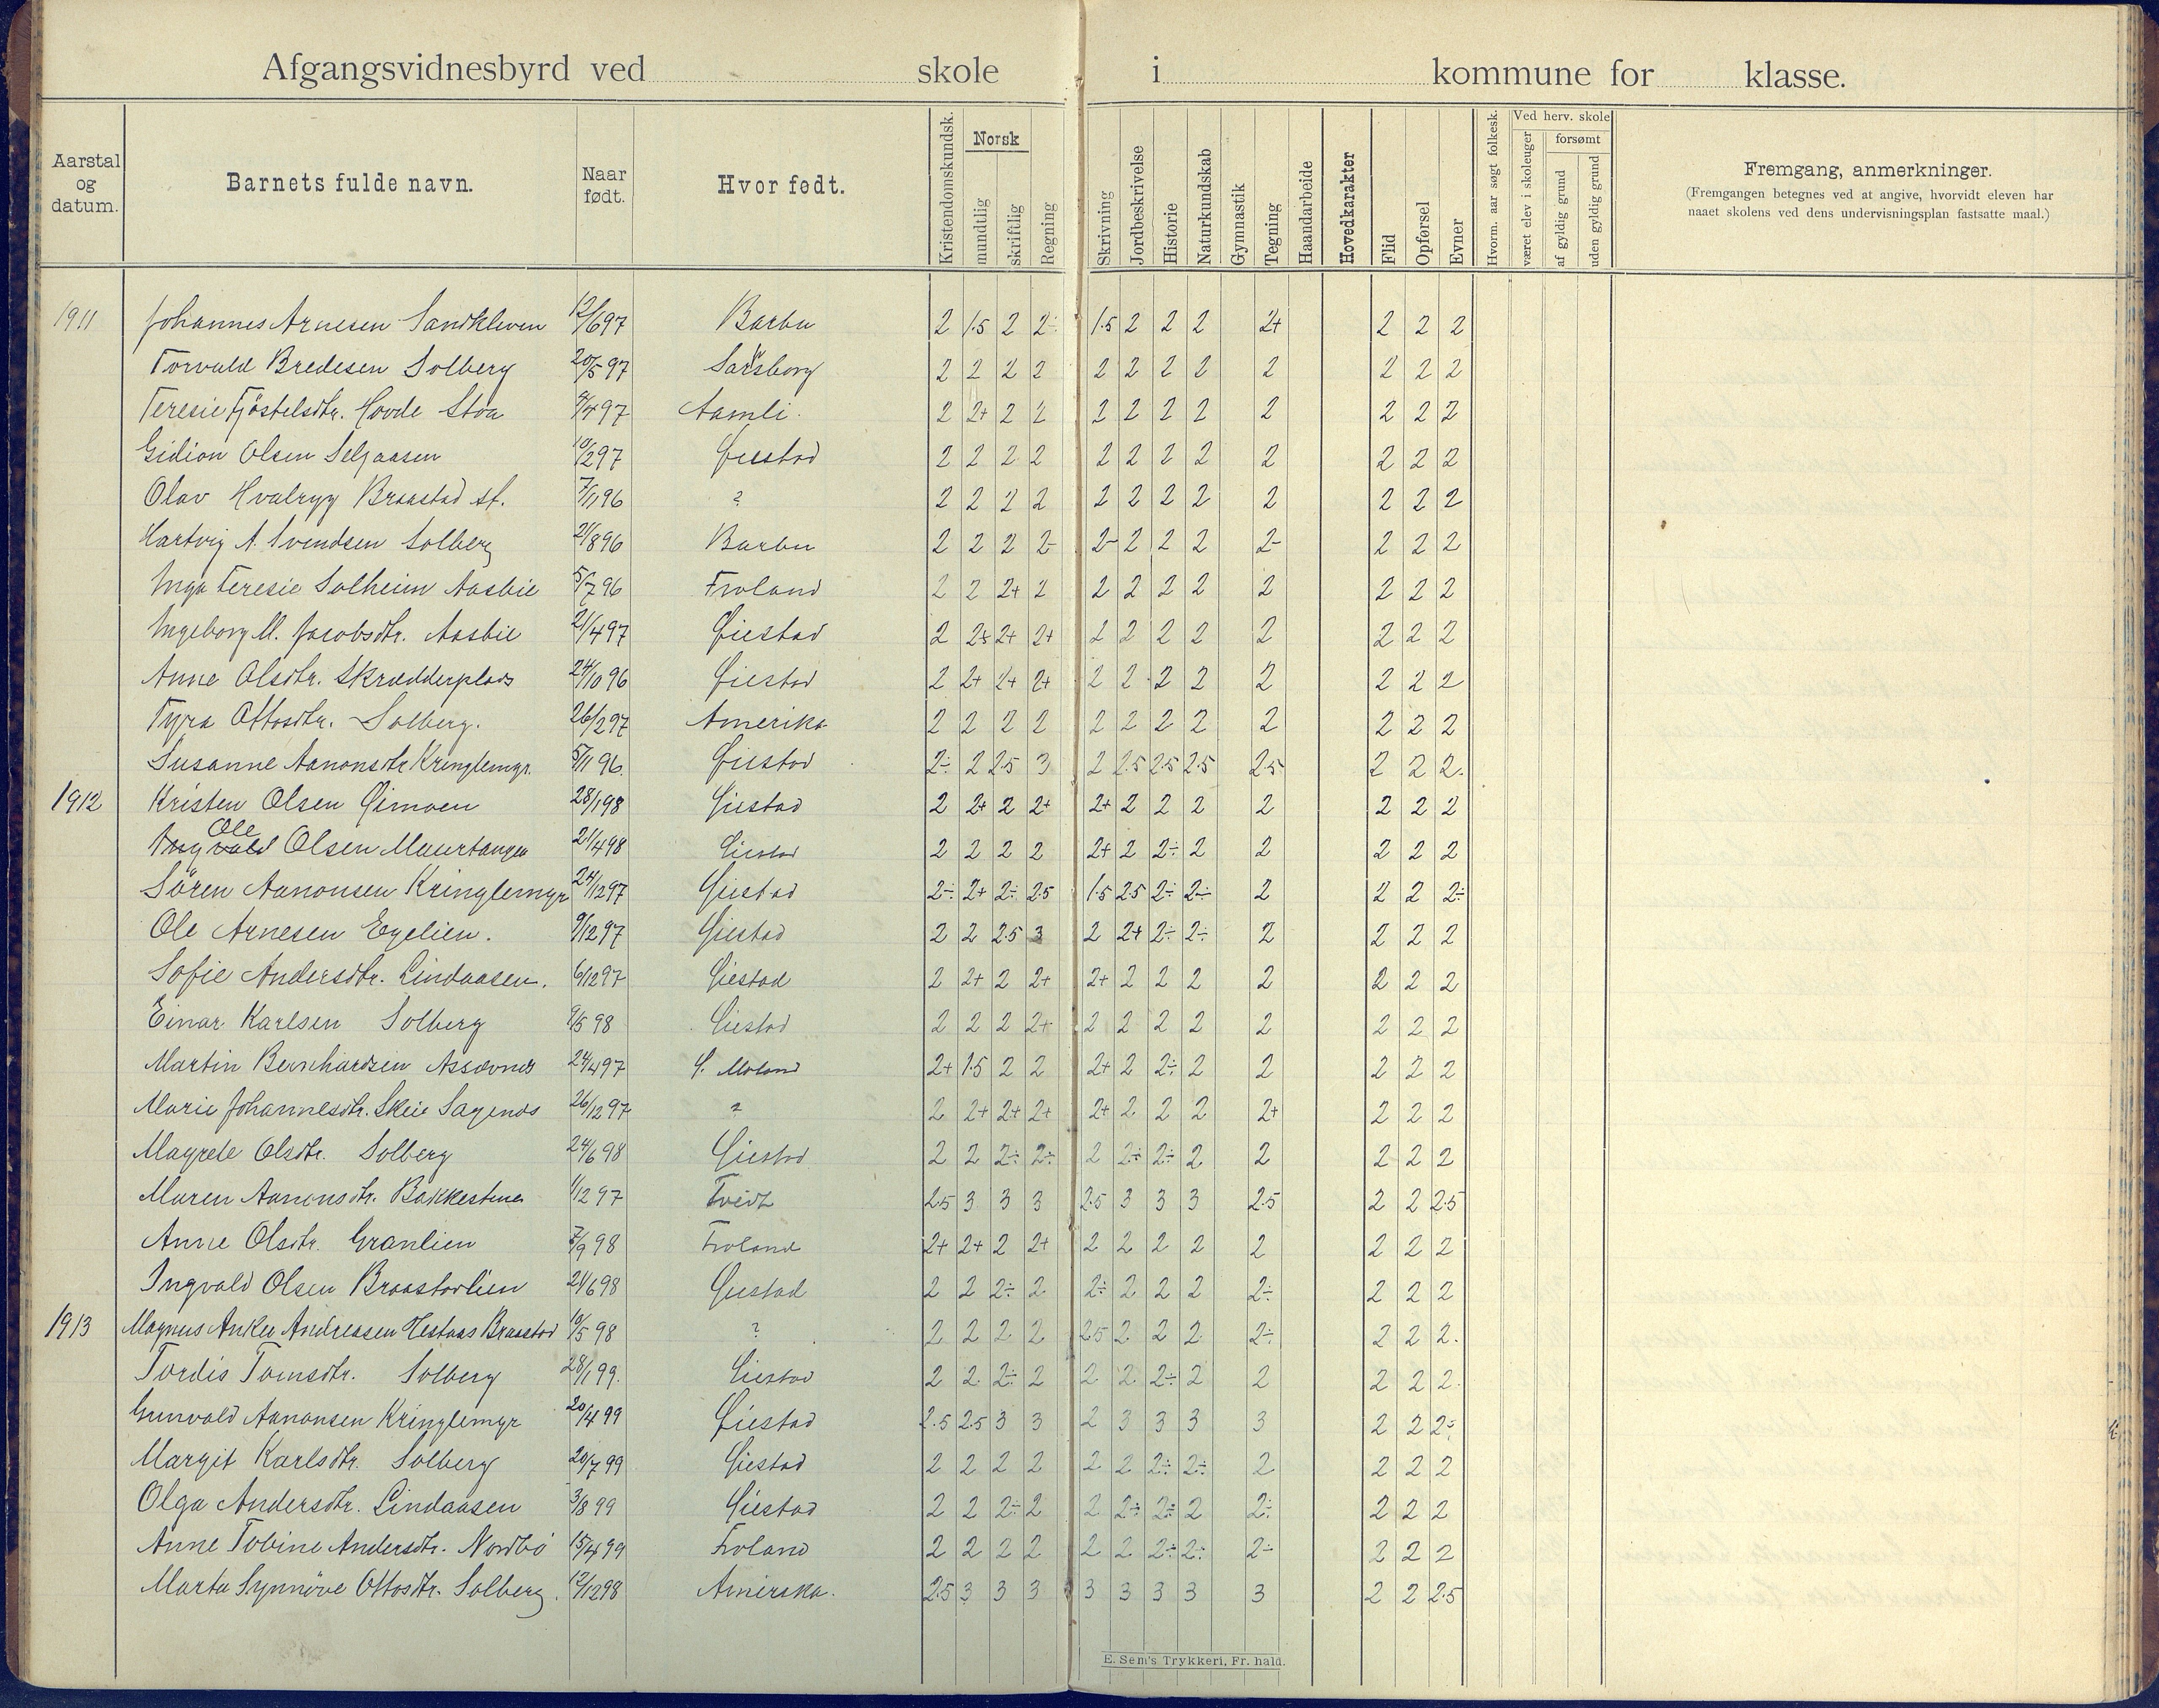 Afgangsvidnesbyrd ved skole i kommune for klasse.
Aarstal og datum. Barnets fulde navn. Naar født. Hvor født. Kristendomskundsk. Norsk mundtlig skriftlig Regning Skrivning Jordbeskrivelse Historie Naturkundskab Gymnastik Tegning Haandarbeide Hovedkarakter Flid Opførsel Evner Hvorm. aar søgt folkesk. Ved herv. skole været elev i skoleuger forsømt af gyldig grund uden gyldig grund Fremgang, anmerkninger.
(Fremgangen betegnes ved at angive, hvorvidt eleven har
naaet skolens ved dens undervisningsplan fastsatte maal.)
1911 Johannes Arnesen Sandkleven 12/6 97 Barbu 2 1.5 2 2÷ 1.5 2 2 2 2+ 2 2 2
Torvald Bredesen Solberg 20/5 97 Sarsborg 2 2 2 2 2 2 2 2 2 2 2 2
Teresie Fjöstelsdtr. Hovde Stoa 9/4 97 Aamli. 2 2+ 2 2 2 2 2 2 2 2 2 2
Gidion Olsen Seljaasen 10/2 97 Øiestad 2 2 2 2 2 2 2 2 2 2 2 2
Olav Hvalryg Braastad st. 7/11 96 ? 2 2 2 2 2 2 2 2 2 2 2 2
Hartvig A. Svendsen Solberg 21/8 96 Barbu 2 2 2 2- 2- 2 2 2 2- 2 2 2
Inga Teresie Solheim Aasbie 5/7 96 Froland 2 2 2+ 2 2 2 2 2 2 2 2 2
Ingeborg M. Jacobsdtr. Aasbie 21/4 97 Øiestad 2 2+ 2+ 2+ 2 2 2 2 2 2 2 2
Anne Olsdtr. Skrædderplads 24/10 96 Øiestad 2 2+ 2+ 2+ 2 2 2 2 2 2 2 2
Tyra Ottosdtr. Solberg. 26/2 97 Amerika 2 2 2 2 2 2 2 2 2 2 2 2
Susanne Aanonsdtr Kringlemyr. 5/11 96. Øiestad 2÷ 2 2.5 3 2 2.5 2.5 2.5 2.5 2 2 2.
1912 Kristen Olsen Øimoen 28/1 98 Øiestad 2 2+ 2 2+ 2+ 2 2 2 2 2 2 2
Ole
Ingvald Olsen Maurtangen 21/4 98 Øiestad 2 2 2 2 2+ 2 2÷ 2 2 2 2 2
Sören Aanonsen Kringlemyr 24/12 97 Øiestad 2÷ 2+ 2÷ 2.5 1.5 2.5 2÷ 2÷ 2 2 2 2÷
Ole Arnesen Egelien. 9/12 97 Øiestad 2 2 2.5 3 2 2+ 2÷ 2÷ 2 2 2 2
Sofie Andersdtr. Lindaasen. 6/12 97 Øiestad 2 2+ 2 2+ 2+ 2 2 2 2 2 2 2
Einar Karlsen Solberg 9/5 98 Øiestad 2 2 2 2+ 2 2 2 2 2 2 2 2
Martin Bernhardsen Assævnes 24/4 97 Ø. Moland 2+ 1.5 2 2 2+ 2 2÷ 2 2 2 2 2
Marie Johannesdtr. Skeie Sagenes 26/12 97 ? 2 2+ 2+ 2+ 2+ 2 2 2 2+ 2 2 2
Magrete Olsdtr. Solberg 24/6 98 Øiestad 2 2 2÷ 2÷ 2 2÷ 2÷ 2 2 2 2 2
Maren Aanonsdtr. Bakkestuen 1/12 97 Tveit 2.5 3 3 3 2.5 3 3 3 2.5 2 2 2.5
Anne Olsdtr. Granlien 7/9 98 Froland 2+ 2+ 2 2+ 2 2 2 2 2 2 2 2
Ingvald Olsen Braastadlien 21/6 98 Øiestad 2 2 2÷ 2 2÷ 2 2 2 2÷ 2 2 2
1913 Magnus Anker Andreassen Hestaas Braastad 10/5 98 ? 2 2 2 2 2.5 2 2 2 2÷ 2 2 2.
Tordis Tomsdtr. Solberg 28/1 99. Øiestad 2 2 2÷ 2 2 2 2÷ 2 2 2 2 2.
Gunvald Aanonsen Kringlemyr 20/4 99 Øiestad 2.5 2.5 3 3 2 3 3 3 3 2 2 2÷
Margit Karlsdtr. Solberg 20/7 99 Øiestad 2 2 2 2 2 2 2÷ 2÷ 2 2 2 2
Olga Andersdtr. Lindaasen 3/8 99 Øiestad 2 2 2÷ 2 2 2÷ 2÷ 2 2÷ 2 2 2
Anne Tobine Andersdtr. Nordbö 15/4 99 Froland 2 2 2 2 2 2 2÷ 2÷ 2÷ 2 2 2
Marta Synnöve Ottosdtr. Solberg. 12/12 98 Amerika. 2.5 3 3 3 3 3 3 3 3 2 2 2.5
E. Sem's Trykkeri, Fr. hald.